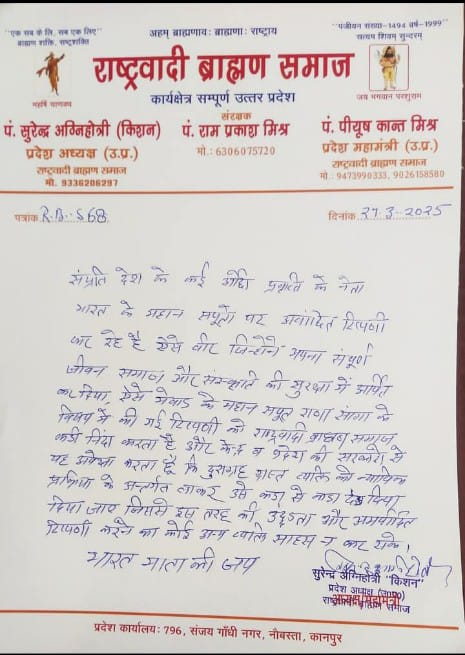 "एक सब के लि, सब एक लिए"
ब्राह्मण शक्ति, राष्ट्रशक्ति
अहम् ब्राह्मणायः ब्राह्मणाः राष्ट्राय
"पंजीयन संख्या-1494 वर्ष-1999"
सत्यम शिवम् सुन्दरम्
महर्षि चाणक्य
राष्ट्रवादी ब्राह्मण समाज
जय भगवान परशुराम
कार्यक्षेत्र सम्पूर्ण उत्तर प्रदेश
संरक्षक
पं. सुरेन्द्र अग्निहोत्री (किशन)
पं. राम प्रकाश मिश्र
पं. पीयूष कान्त मिश्र
प्रदेश अध्यक्ष (उ.प्र.)
मो.: 6306075720
प्रदेश महामंत्री (उ.प्र.)
राष्ट्रवादी ब्राह्मण समाज
राष्ट्रवादी ब्राह्मण समाज
मो. 9336206297
मो.- 9473990333, 9026158580
पत्रांक R.B.-S68
दिनांक 27-3-2025
संप्रति देश के कई ओछी प्रवृत्ति के नेता
भारत के महान सपूतों पर अवांछित टिप्पणी
कर रहे है ऐसे वीर जिन्होंने अपना संपूर्ण
जीवन समाज और संस्कृति की सुरक्षा में अर्पित
कर दिया, ऐसे मेवाड़ के महान सपूत राणा सांगा के
विषय में की गई टिप्पणी की राष्ट्रवादी ब्राह्मण समाज
कड़ी निंदा करता है और केन्द्र व प्रदेश की सरकारों से
यह अपेक्षा करता है कि दुराग्रह ग्रस्त व्यक्ति को न्यायिक
प्रक्रिया के अन्तर्गत लाकर उसे कड़ा से कड़ा दंड दिया
दिया जाए जिससे इस तरह की उदंडता और अमर्यादित
टिप्पणी करने का कोई अन्य व्यक्ति साहस न कर सके,
भारत माता की जय
सुरेन्द्र अग्निहोत्री "किशन"
प्रदेश अध्यक्ष (उ०प्र०)
राष्ट्रवादी ब्राह्मण समाज
प्रदेश कार्यालय: 796, संजय गाँधी नगर, नौबस्ता, कानपुर